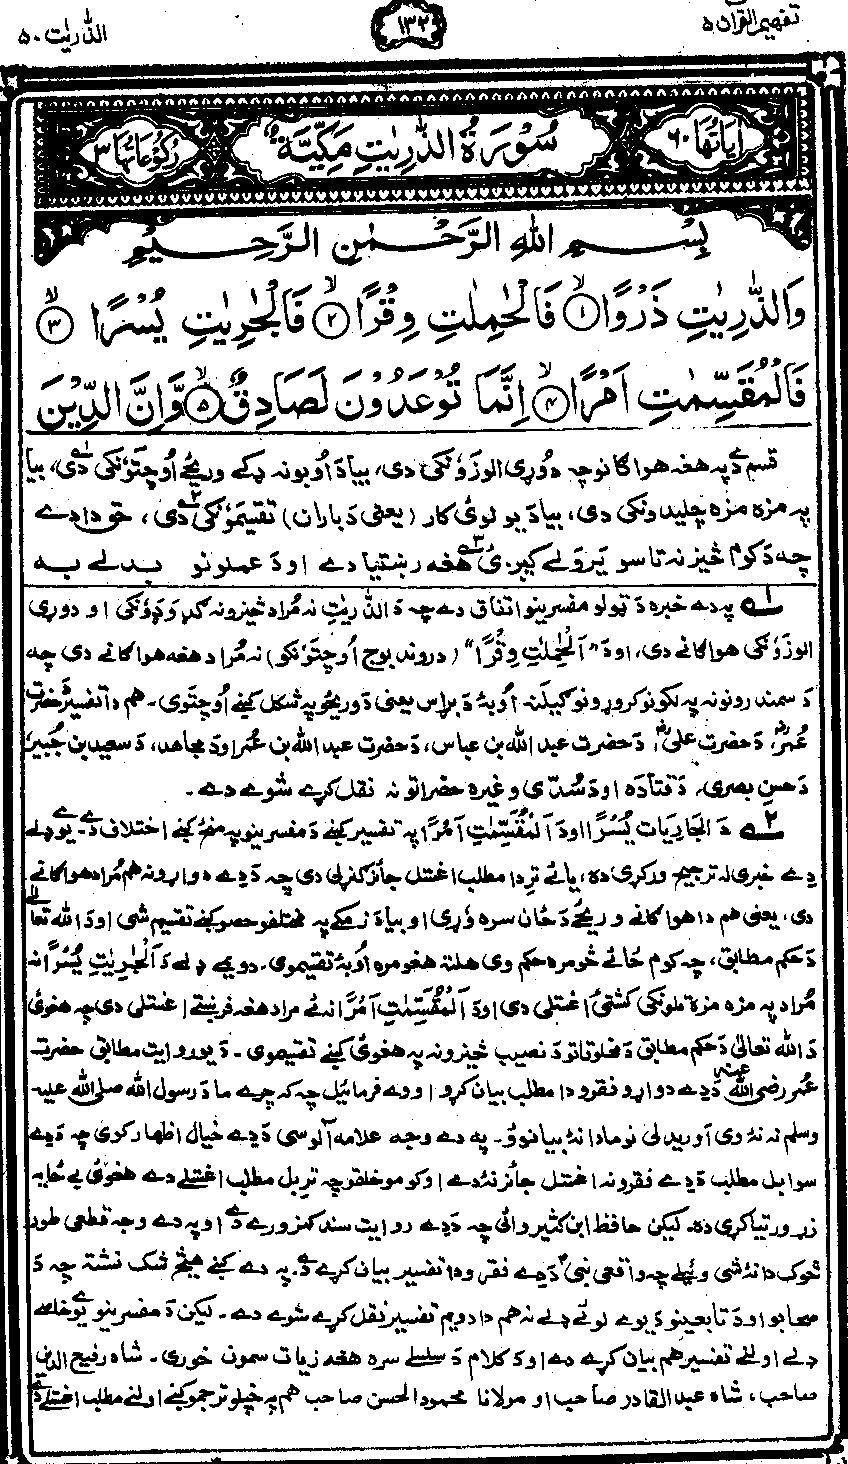 تفهیم القرآن ۵
۱۳۲
الذّٰریٰت ۵۰
اٰیَاتُهَا ۶۰
سُوْرَةُ الذّٰرِیٰتِ مَکِّیَّةٌ
رُکُوْعَاتُهَا ۳
بِسْمِ اللهِ الرَّحْمٰنِ الرَّحِیْمِ
وَالذّٰرِیٰتِ ذَرْوًا ۱ فَالْحٰمِلٰتِ وِقْرًا ۲ فَالْجٰرِیٰتِ یُسْرًا ۳
فَالْمُقَسِّمٰتِ اَمْرًا ۴ اِنَّمَا تُوْعَدُوْنَ لَصَادِقٌ ۵ وَّاِنَّ الدِّیْنَ
قسم دے په هغه هواګانو چه دوړی الوزوُنکی دی، بیا د اُوبو نه ډکے وریځے اُوچتوُنکی دی، بیا
په مزه مزه چلیدونکی دی، بیا د یو لویٔ کار (یعنی د باران) تقیموُنکی دی، حق دا دے
چه د کوم څیز نه تاسو یرولے کیږیٔ هغه رښتیا دے او د عملونو بدلے به
۱ په دے خبره د ټولو مفسرینو اتفاق دے چه د الذّٰریٰتِ نه مُراد څیزونه ګډ وډوُنکی او دوړی
الوزوُنکی هواګانے دی، او د "اَلْحٰمِلٰتِ وِقْرًا" (دروند بوج اُوچتوُنکو) نه مُراد هغه هواګانے دی چه
د سمندرونو نه په لکونو کروړونو ګیلنه اُوبهٔ د براس یعنی د وریځو په شکل کښے اُوچتوی۔ هم دا تفسیر حضرت
عُمرؓ، د حضرت علیؓ، د حضرت عبد الله بن عباس، د حضرت عبد الله بن عُمر او د مجاهد، د سعید بن جُبیر
د حسن بصری، د قتاده او د سُدّی وغیره حضراتو نه نقل کرے شوے دے۔
۲ د الجاریات یُسْرًا او د اَلْمُقَسِّمٰتِ اَمْرًا په تفسیر کښے د مفسرینو په مینځ کښے اختلاف دے۔ یو ډلے
دے خبری له ترجیح ورکړی ده، یا ئے ترِ دا مطلب اغستل جائز ګنړلی دی چه د دے دواړو نه هم مُراد هواګانے
دی، یعنی هم دا هواګانے وریځے د ځان سره وړی او بیا د زمکے په مختلفو حصو کښے تقیم شی او د الله تعالیٰ
د حکم مطابق، چه کوم ځائے څومره حکم وی هلته هغومره اُوبهٔ تقیموی۔ دویمے ډلے د اَلْجٰرِیٰتِ یُسْرًا نه
مُراد په مزه مزه تلوُنکی کشتیٔ اغستلی دی او د اَلْمُقَسِّمٰتِ اَمْرًا نه ئے مراد هغه فرښتے اغستلی دی چه هغویٔ
د الله تعالیٰ د حکم مطابق د مخلوقاتو د نصیب څیزونه په هغویٔ کښے تقیموی۔ د یو روایت مطابق حضرت
عُمر رضی الله عنه د دے دواړو فقرو دا مطلب بیان کرو او وے فرمائیل چه که چرے ما د رسول الله صلی الله علیه
وسلم نه نهٔ وی آوریدلی نو ما دا نهٔ بیانووٗ۔ په دے وجه علامه آلوسی د دے خیال اظهار کوی چه د دے
سوا بل مطلب د دے فقرو نه اغستل جائز نهٔ دے او کومو خلقو چه ترِ بل مطلب اغستلے دے هغویٔ بے ځایه
زړورتیا کړی ده۔ لیکن حافظ ابن کثیر وائی چه د دے روایت سند کمزورے دے او په دے وجه قطعی طور
څوک دا نهٔ شی وئیلے چه واقعی نبیؐ د دے فقرو دا تفسیر بیان کرے دے۔ په دے کښے هیڅ شک نشته چه د
صحابو او د تابعینو د یوے لوئے ډلے نه هم دا دویم تفسیر نقل کرے شوے دے۔ لیکن د مفسرینو یوُ خاصے
ډلے اولنے تفسیر هم بیان کرے دے او د کلام د سلسلے سره هغه زیات سمون خوری۔ شاه رفیع الدین
صاحب، شاه عبد القادر صاحب او مولانا محمود الحسن صاحب هم په خپلو ترجمو کښے اولنے مطلب اغستلے دے